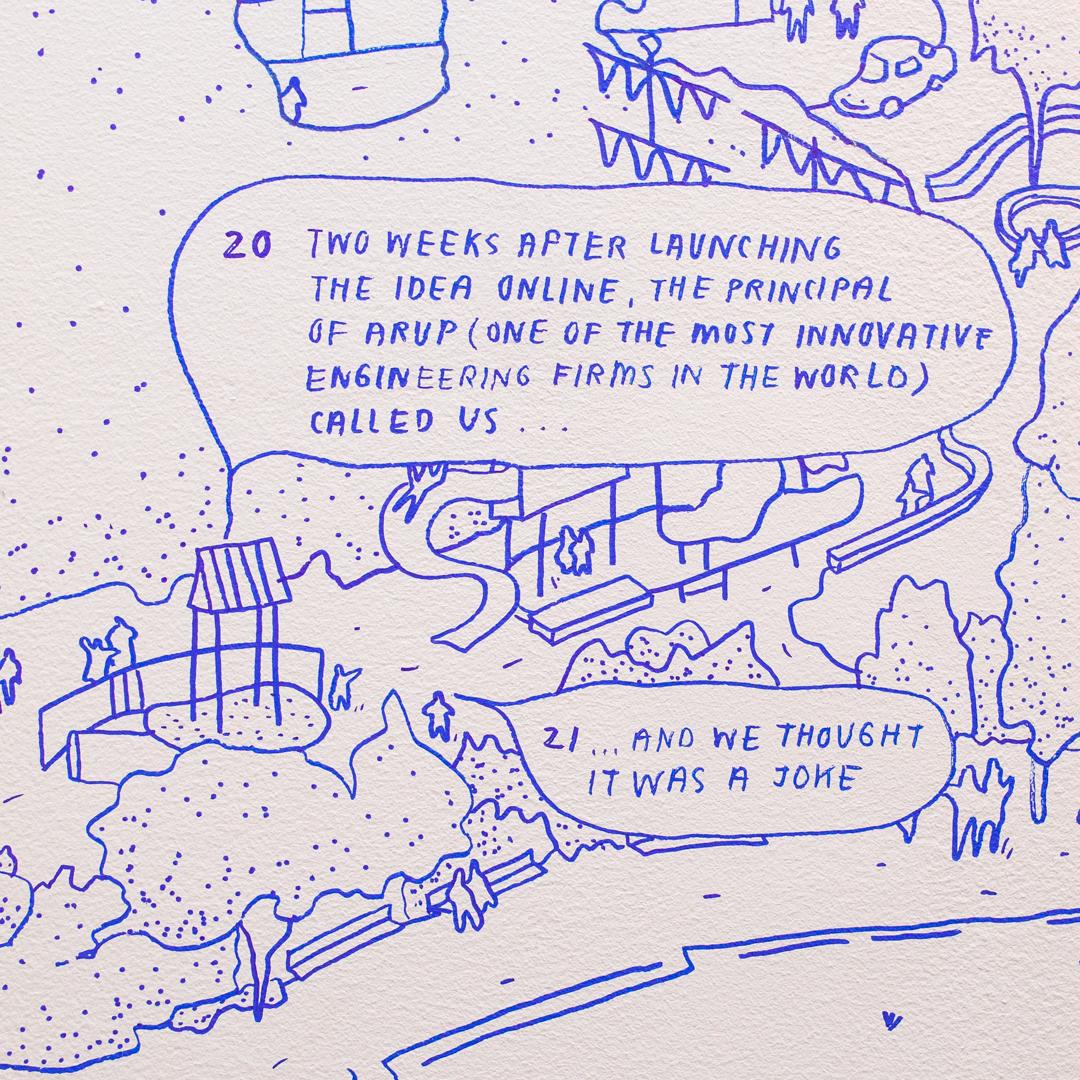 20 TWO WEEKS AFTER LAUNCHING
THE IDEA ONLINE, THE PRINCIPAL
OF ARUP (ONE OF THE MOST INNOVATIVE
ENGINEERING FIRMS IN THE WORLD)
CALLED US ...
21 ... AND WE THOUGHT
IT WAS A JOKE